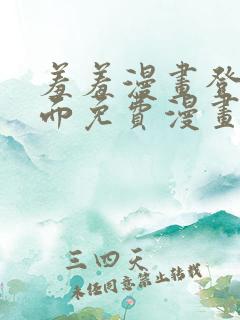 羞羞漫畫登
而免費漫畫
三四天
未经同意禁止转载